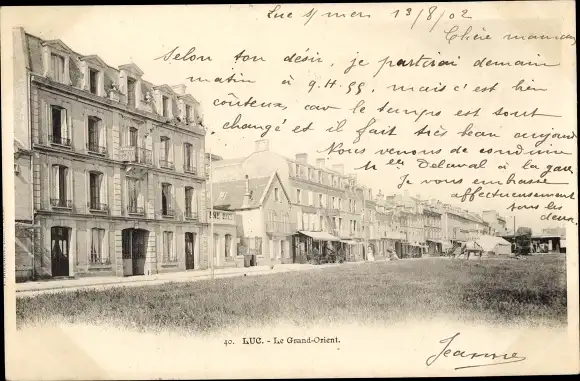 Luc s/ mer 13/8/02
Chère maman,
Selon ton désir, je partirai demain
matin à 9.H.55, mais c'est bien
coûteux, car le temps est tout
changé et il fait très beau aujourd
Nous venons de conduire
Mlle Delaval à la gare
Je vous embrasse
affectueusement
tous les
deux.
40. LUC. - Le Grand-Orient.
Jeanne